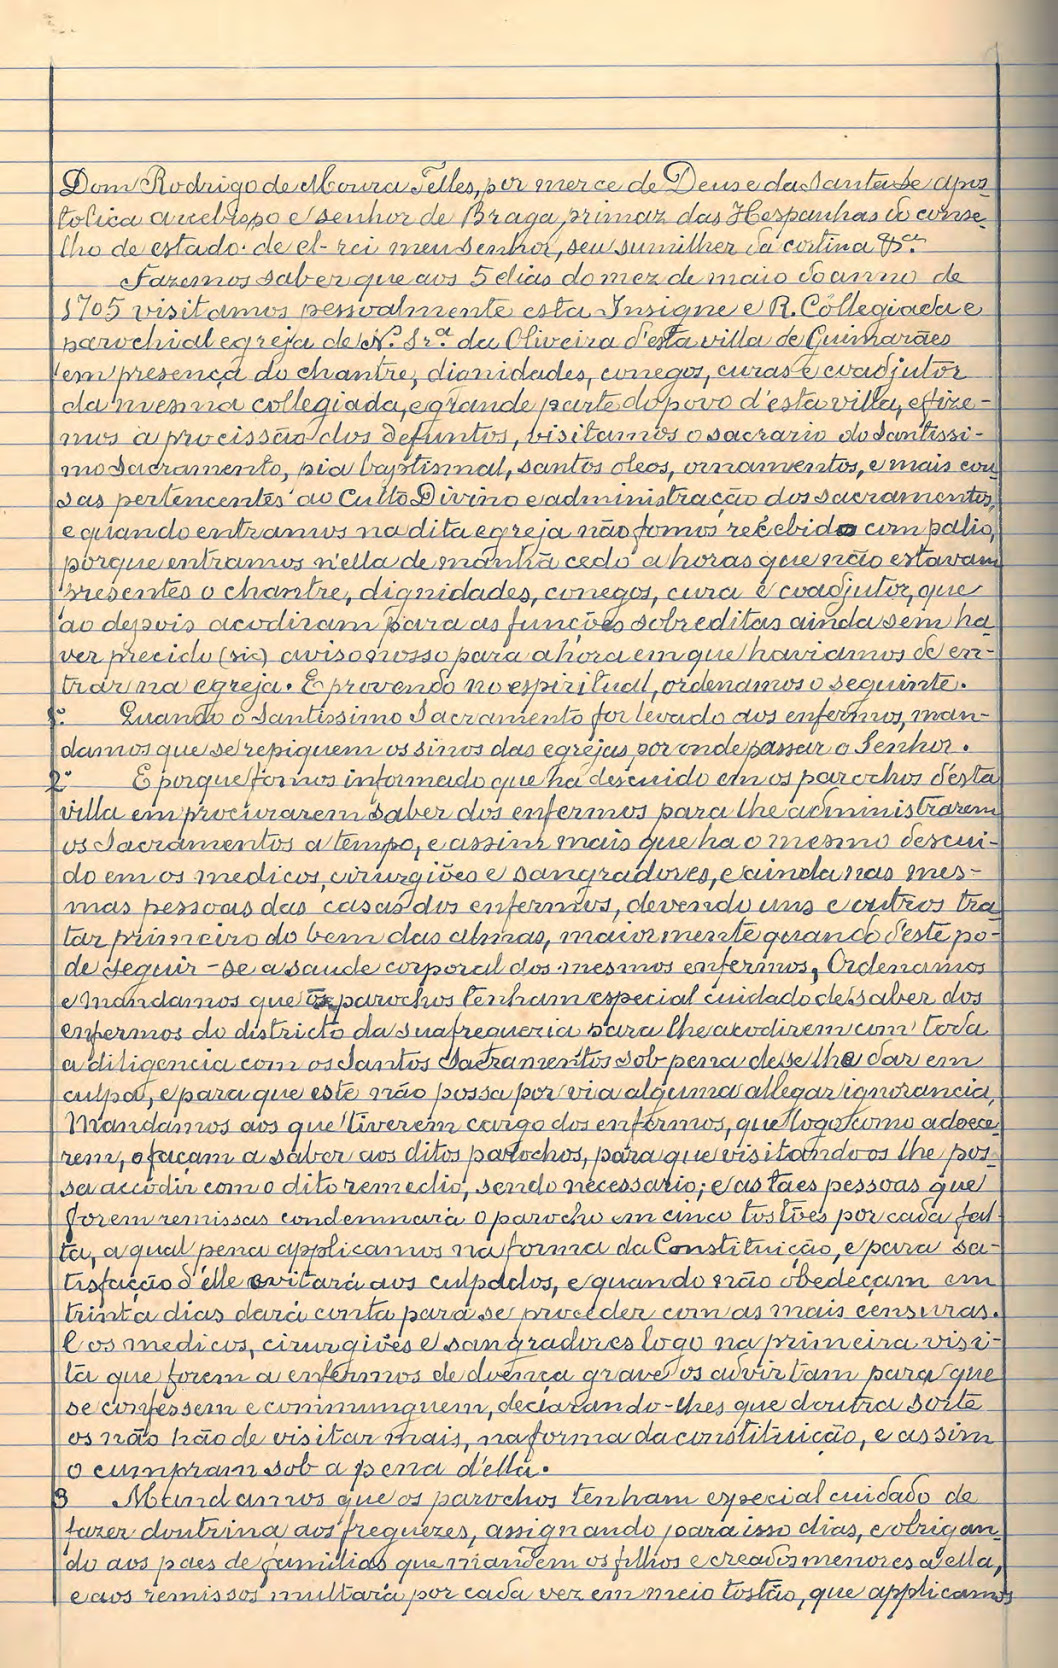 Dom Rodrigo de Moura Telles, por merce de Deus e da Santa Se apos-
tolica arcebispo e senhor de Braga, primaz das Hespanhas do conse-
lho de estado de el-rei meu senhor, seu sumilher da cortina &.ª
Fazemos saber que aos 5 dias do mez de maio do anno de
1705 visitamos pessoalmente esta Insigne e R. Collegiada e
parochial egreja de N. Sr.ª da Oliveira d'esta villa de Guimarães
em presença do chantre, dignidades, conegos, curas e coadjutor
da mesma collegiada, e grande parte do povo d'esta villa, e fize-
mos a procissão dos defuntos, visitamos o sacrario do Santissi-
mo Sacramento, pia baptismal, santos oleos, ornamentos, e mais cou-
sas pertencentes ao Culto Divino e administração dos sacramentos,
e quando entramos na dita egreja não fomos recebido com palio,
porque entramos n'ella de manhã cedo a horas que não estavam
presentes o chantre, dignidades, conegos, cura e coadjutor, que
ao depois acodiram para as funções sobreditas ainda sem ha-
ver precido (sic) aviso nosso para a hora em que haviamos de en-
trar na egreja. E provendo no espiritual, ordenamos o seguinte.
1º Quando o Santissimo Sacramento for levado aos enfermos, man-
damos que se repiquem os sinos das egrejas por onde passar o Senhor.
2º E porque fomos informado que ha descuido em os parochos d'esta
villa em procurarem saber dos enfermos para lhe administrarem
os Sacramentos a tempo, e assim mais que ha o mesmo descui-
do em os medicos, cirurgiões e sangradores, e ainda nas mes-
mas pessoas das casas dos enfermos, devendo uns e outros tra-
tar primeiro do bem das almas, maiormente quando d'este po-
de seguir-se a saude corporal dos mesmos enfermos, Ordenamos
e mandamos que os parochos tenham especial cuidado de saber dos
enfermos do districto da sua fregueria para lhe acodirem com toda
a diligencia com os Santos Sacramentos sob pena de se lhe dar em
culpa, e para que este não possa por via alguma allegar ignorancia,
Mandamos aos que tiverem cargo dos enfermos, que logo como adoece-
rem, o façam a saber aos ditos parochos, para que visitando os lhe pos-
sa accodir com o dito remedio, sendo necessario; e as tães pessoas que
forem remissas condemnará o parocho em cinco tostões por cada fal-
ta, a qual pena applicamos na forma da Constituição, e para sa-
tisfação d'elle evitará aos culpados, e quando não obedeçam em
trinta dias dará conta para se proceder com as mais censuras.
E os medicos, cirurgiões e sangradores logo na primeira visi-
ta que forem a enfermos de doença grave os advirtam para que
se confessem e communguem, declarando-lhes que doutra sorte
os não hão de visitar mais, na forma da constituição, e assim
o cumpram sob a pena d'ella.
3 Mandamos que os parochos tenham especial cuidado de
fazer doutrina aos freguezes, assignando para isso dias, e obrigan-
do aos paes de familias que mandem os filhos e creados menores a ella,
e aos remissos multará por cada vez em meio tostão, que applicamos